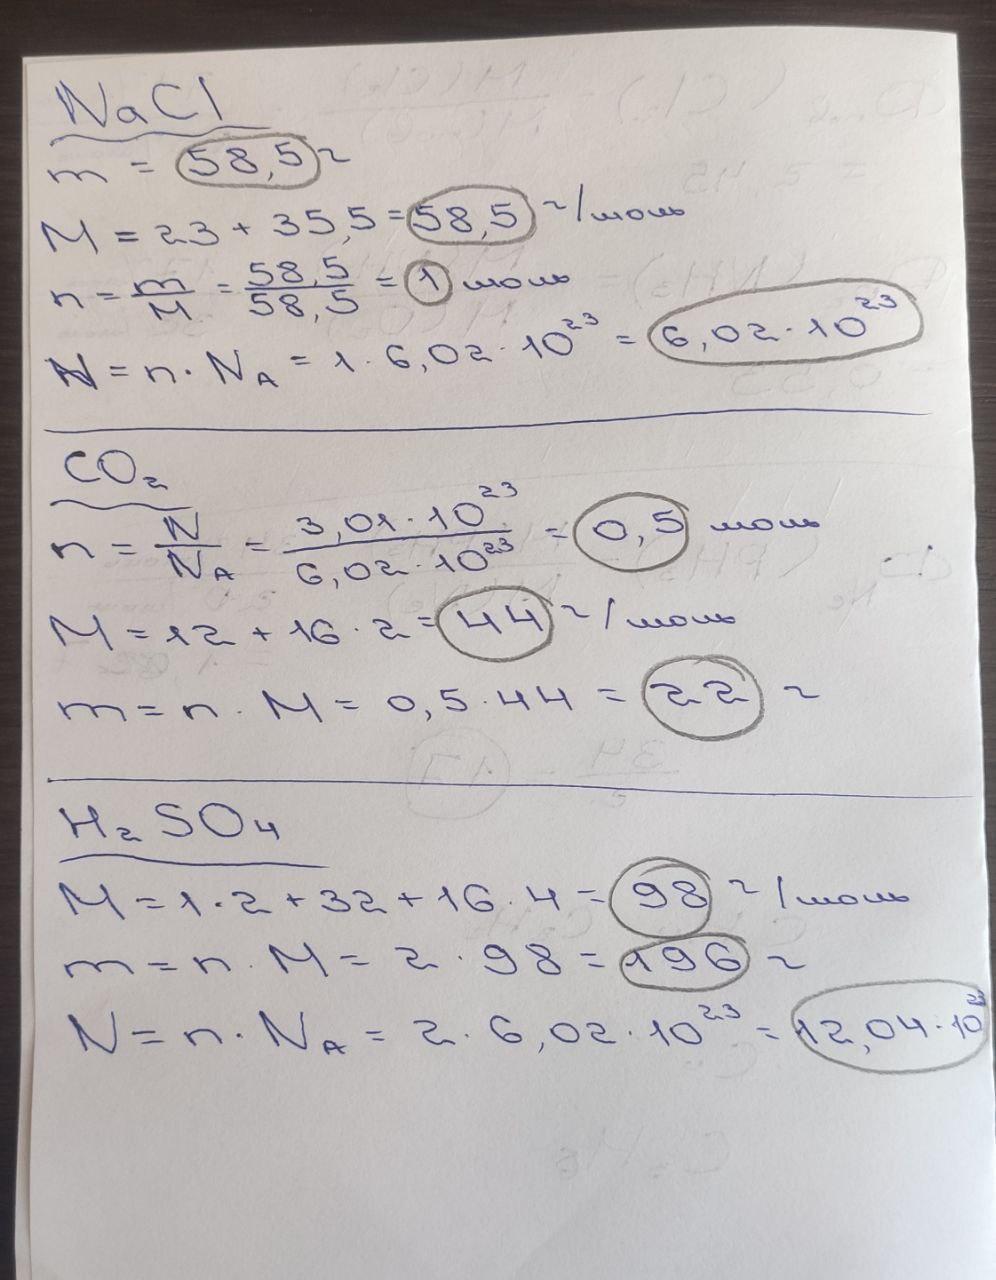 NaCl
m = 58,5 г
M = 23 + 35,5 = 58,5 г/моль
n = m/M = 58,5/58,5 = 1 моль
N = n · N_A = 1 · 6,02 · 10^23 = 6,02 · 10^23
CO₂
n = N/N_A = 3,01 · 10^23 / 6,02 · 10^23 = 0,5 моль
M = 12 + 16 · 2 = 44 г/моль
m = n · M = 0,5 · 44 = 22 г
H₂SO₄
M = 1 · 2 + 32 + 16 · 4 = 98 г/моль
m = n · M = 2 · 98 = 196 г
N = n · N_A = 2 · 6,02 · 10^23 = 12,04 · 10^23